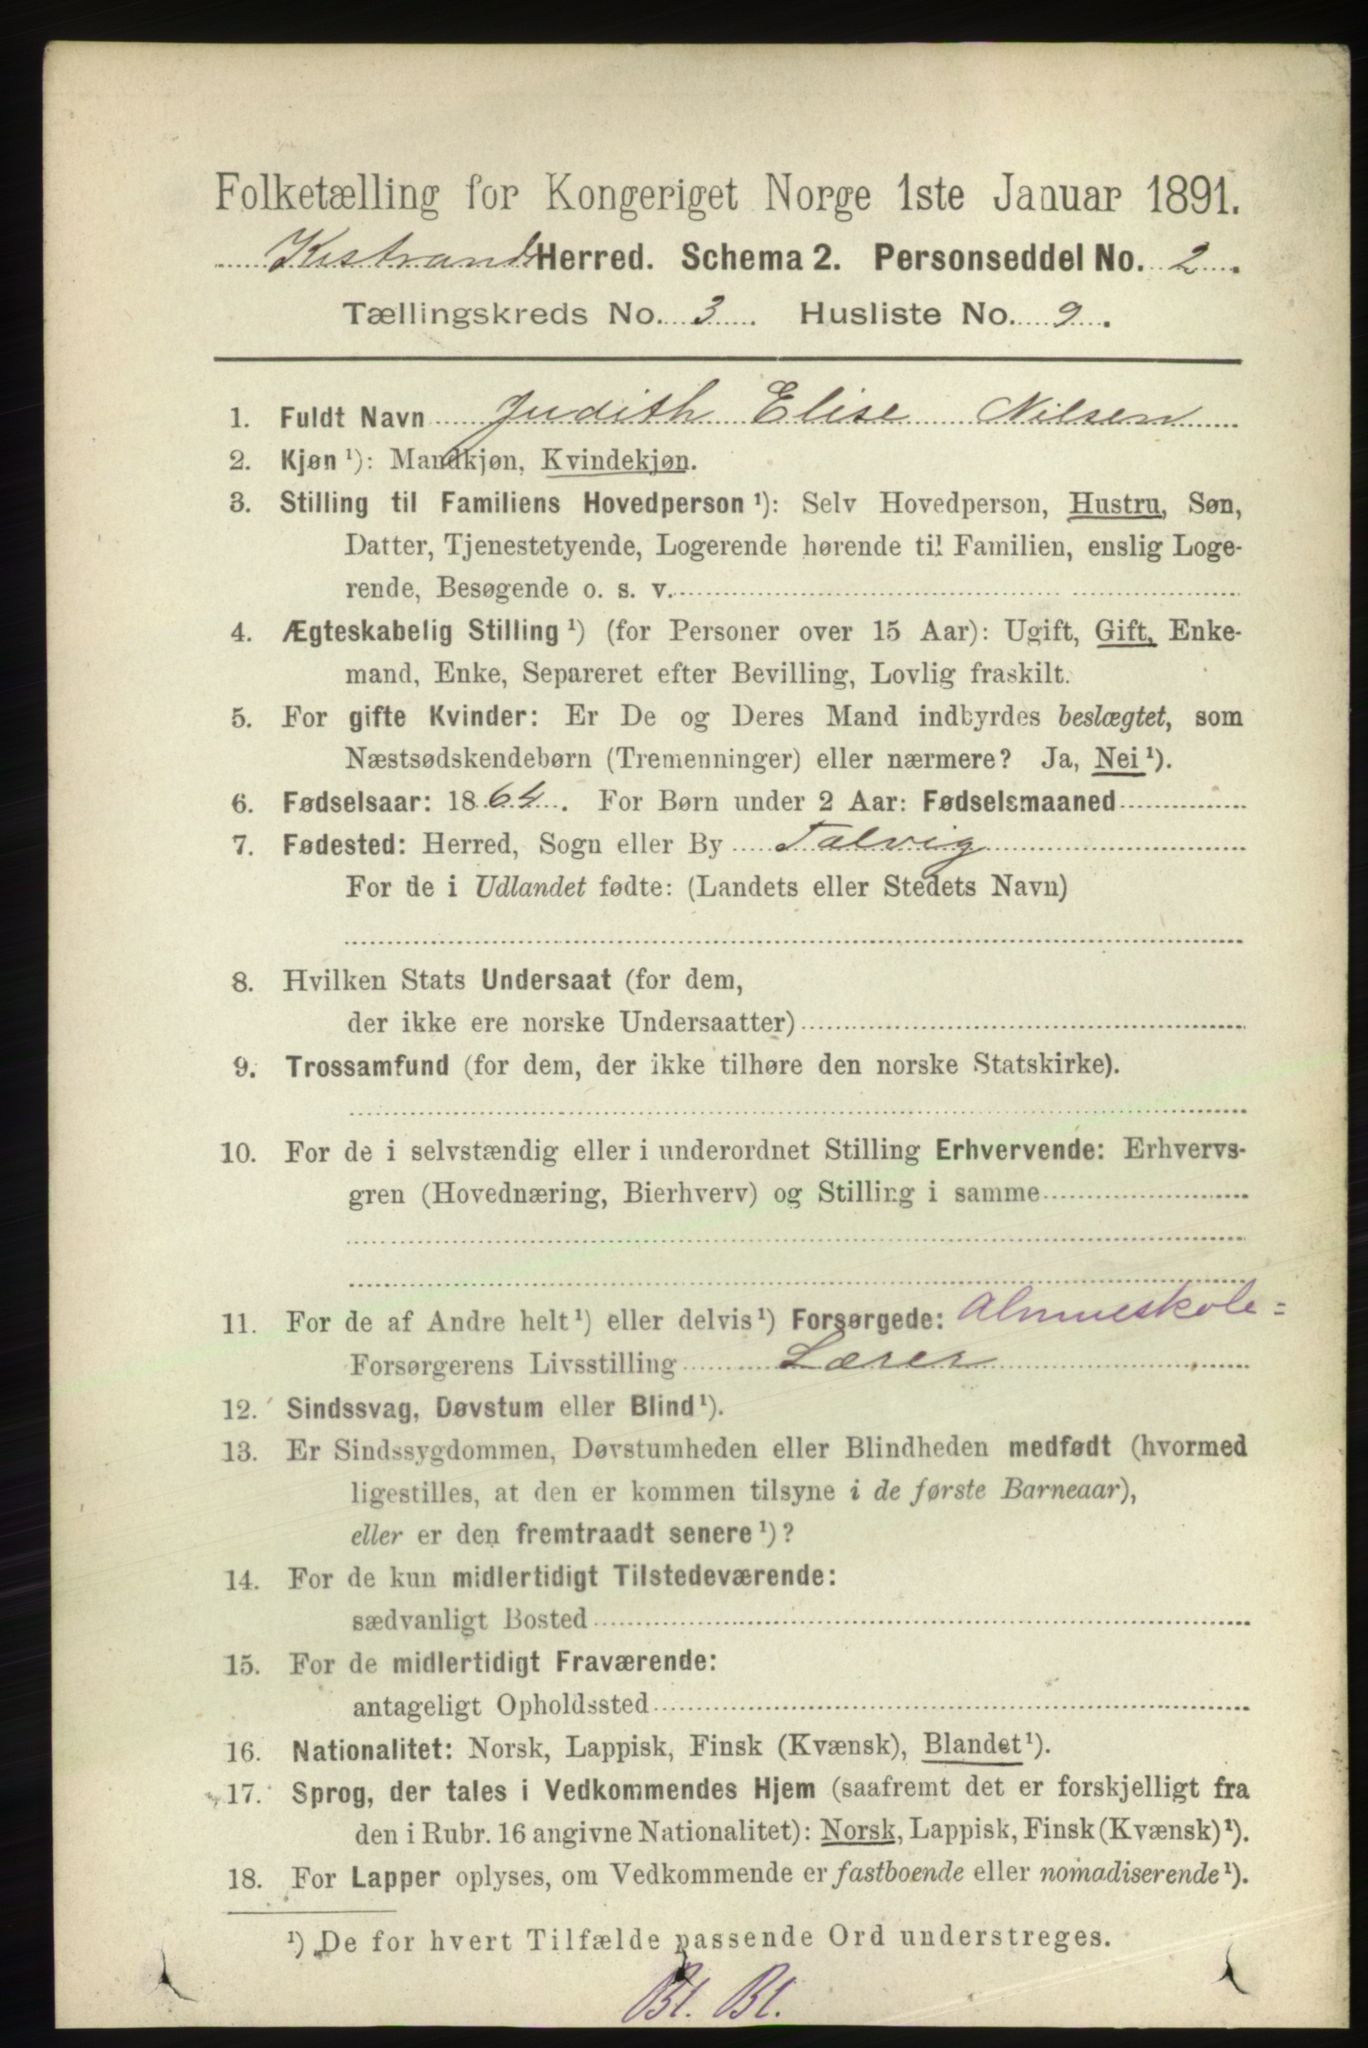 Folketælling for Kongeriget Norge 1ste Januar 1891.
Kistrand Herred. Schema 2. Personseddel No. 2.
Tællingskreds No. 3. Husliste No. 9.
1. Fuldt Navn Judith Elise Nilsen
2. Kjøn ¹): Mandkjøn, Kvindekjøn.
3. Stilling til Familiens Hovedperson ¹): Selv Hovedperson, Hustru, Søn,
Datter, Tjenestetyende, Logerende hørende til Familien, enslig Loge-
rende, Besøgende o. s. v.
4. Ægteskabelig Stilling ¹) (for Personer over 15 Aar): Ugift, Gift, Enke-
mand, Enke, Separeret efter Bevilling, Lovlig fraskilt.
5. For gifte Kvinder: Er De og Deres Mand indbyrdes beslægtet, som
Næstsødskendebørn (Tremenninger) eller nærmere? Ja, Nei ¹).
6. Fødselsaar: 1864. For Børn under 2 Aar: Fødselsmaaned
7. Fødested: Herred, Sogn eller By Talvig
For de i Udlandet fødte: (Landets eller Stedets Navn)
8. Hvilken Stats Undersaat (for dem,
der ikke ere norske Undersaatter)
9. Trossamfund (for dem, der ikke tilhøre den norske Statskirke).
10. For de i selvstændig eller i underordnet Stilling Erhvervende: Erhvervs-
gren (Hovednæring, Bierhverv) og Stilling i samme
11. For de af Andre helt ¹) eller delvis ¹) Forsørgede: Almueskole=
Forsørgerens Livsstilling Lærer
12. Sindssvag, Døvstum eller Blind ¹).
13. Er Sindssygdommen, Døvstumheden eller Blindheden medfødt (hvormed
ligestilles, at den er kommen tilsyne i de første Barneaar),
eller er den fremtraadt senere ¹)?
14. For de kun midlertidigt Tilstedeværende:
sædvanligt Bosted
15. For de midlertidigt Fraværende:
antageligt Opholdssted
16. Nationalitet: Norsk, Lappisk, Finsk (Kvænsk), Blandet ¹).
17. Sprog, der tales i Vedkommendes Hjem (saafremt det er forskjelligt fra
den i Rubr. 16 angivne Nationalitet): Norsk, Lappisk, Finsk (Kvænsk) ¹).
18. For Lapper oplyses, om Vedkommende er fastboende eller nomadiserende ¹).
¹) De for hvert Tilfælde passende Ord understreges.
Bl. Bl.